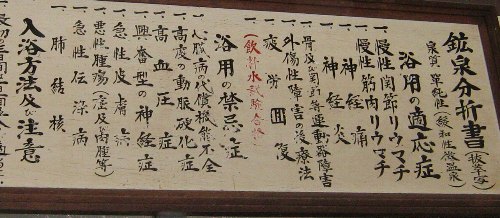 鉱泉分析書（抜萃写）
泉質 単純性（緩和性微温泉）
浴用の適応症
一 慢性関節リウマチ
一 慢性筋肉リウマチ
一 神経痛
一 神経炎
一 骨及び関節等運動器障害
一 外傷性障害後療法
一 疲労回復
（飲料水試験合格）
浴用の禁忌症
一 心臓病の代償機能不全
一 高度の動脈硬化症
一 高血圧症
一 興奮型の神経症
一 急性皮膚病
一 悪性腫瘍（淫及肉腫等）
一 急性伝染病
一 肺結核
入浴方法及び注意